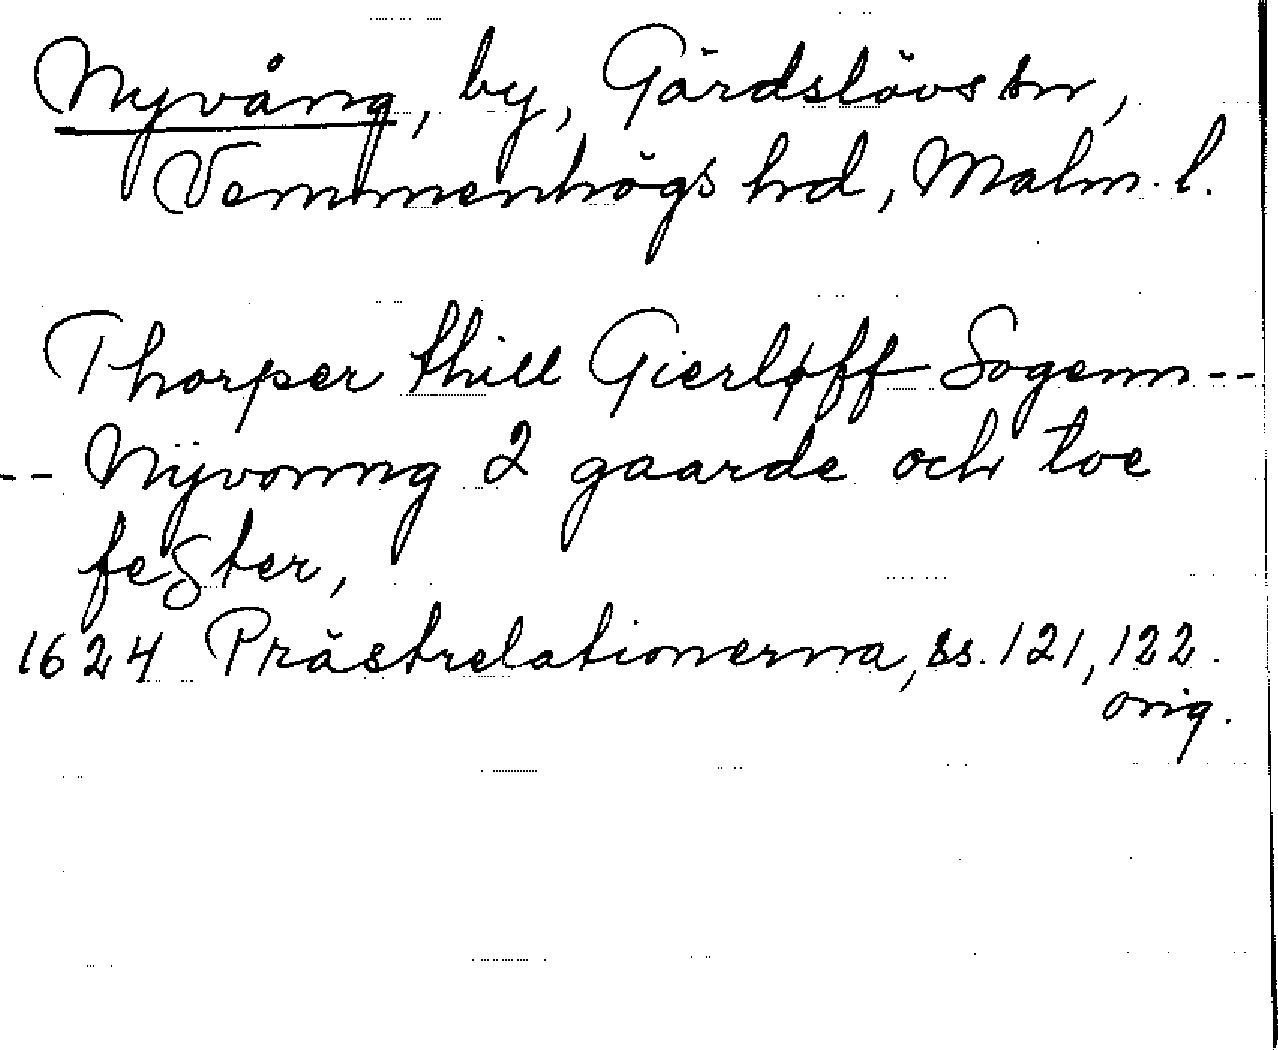 Nyvång, by, Gärdslövs sn,
Vemmenhögs hd, Malm. l.
Thorper thill Gierløff Sogenn--
-- Nÿvonng 2 gaarde och toe
fester,
1624 Prästrelationerna, ss. 121, 122.
orig.